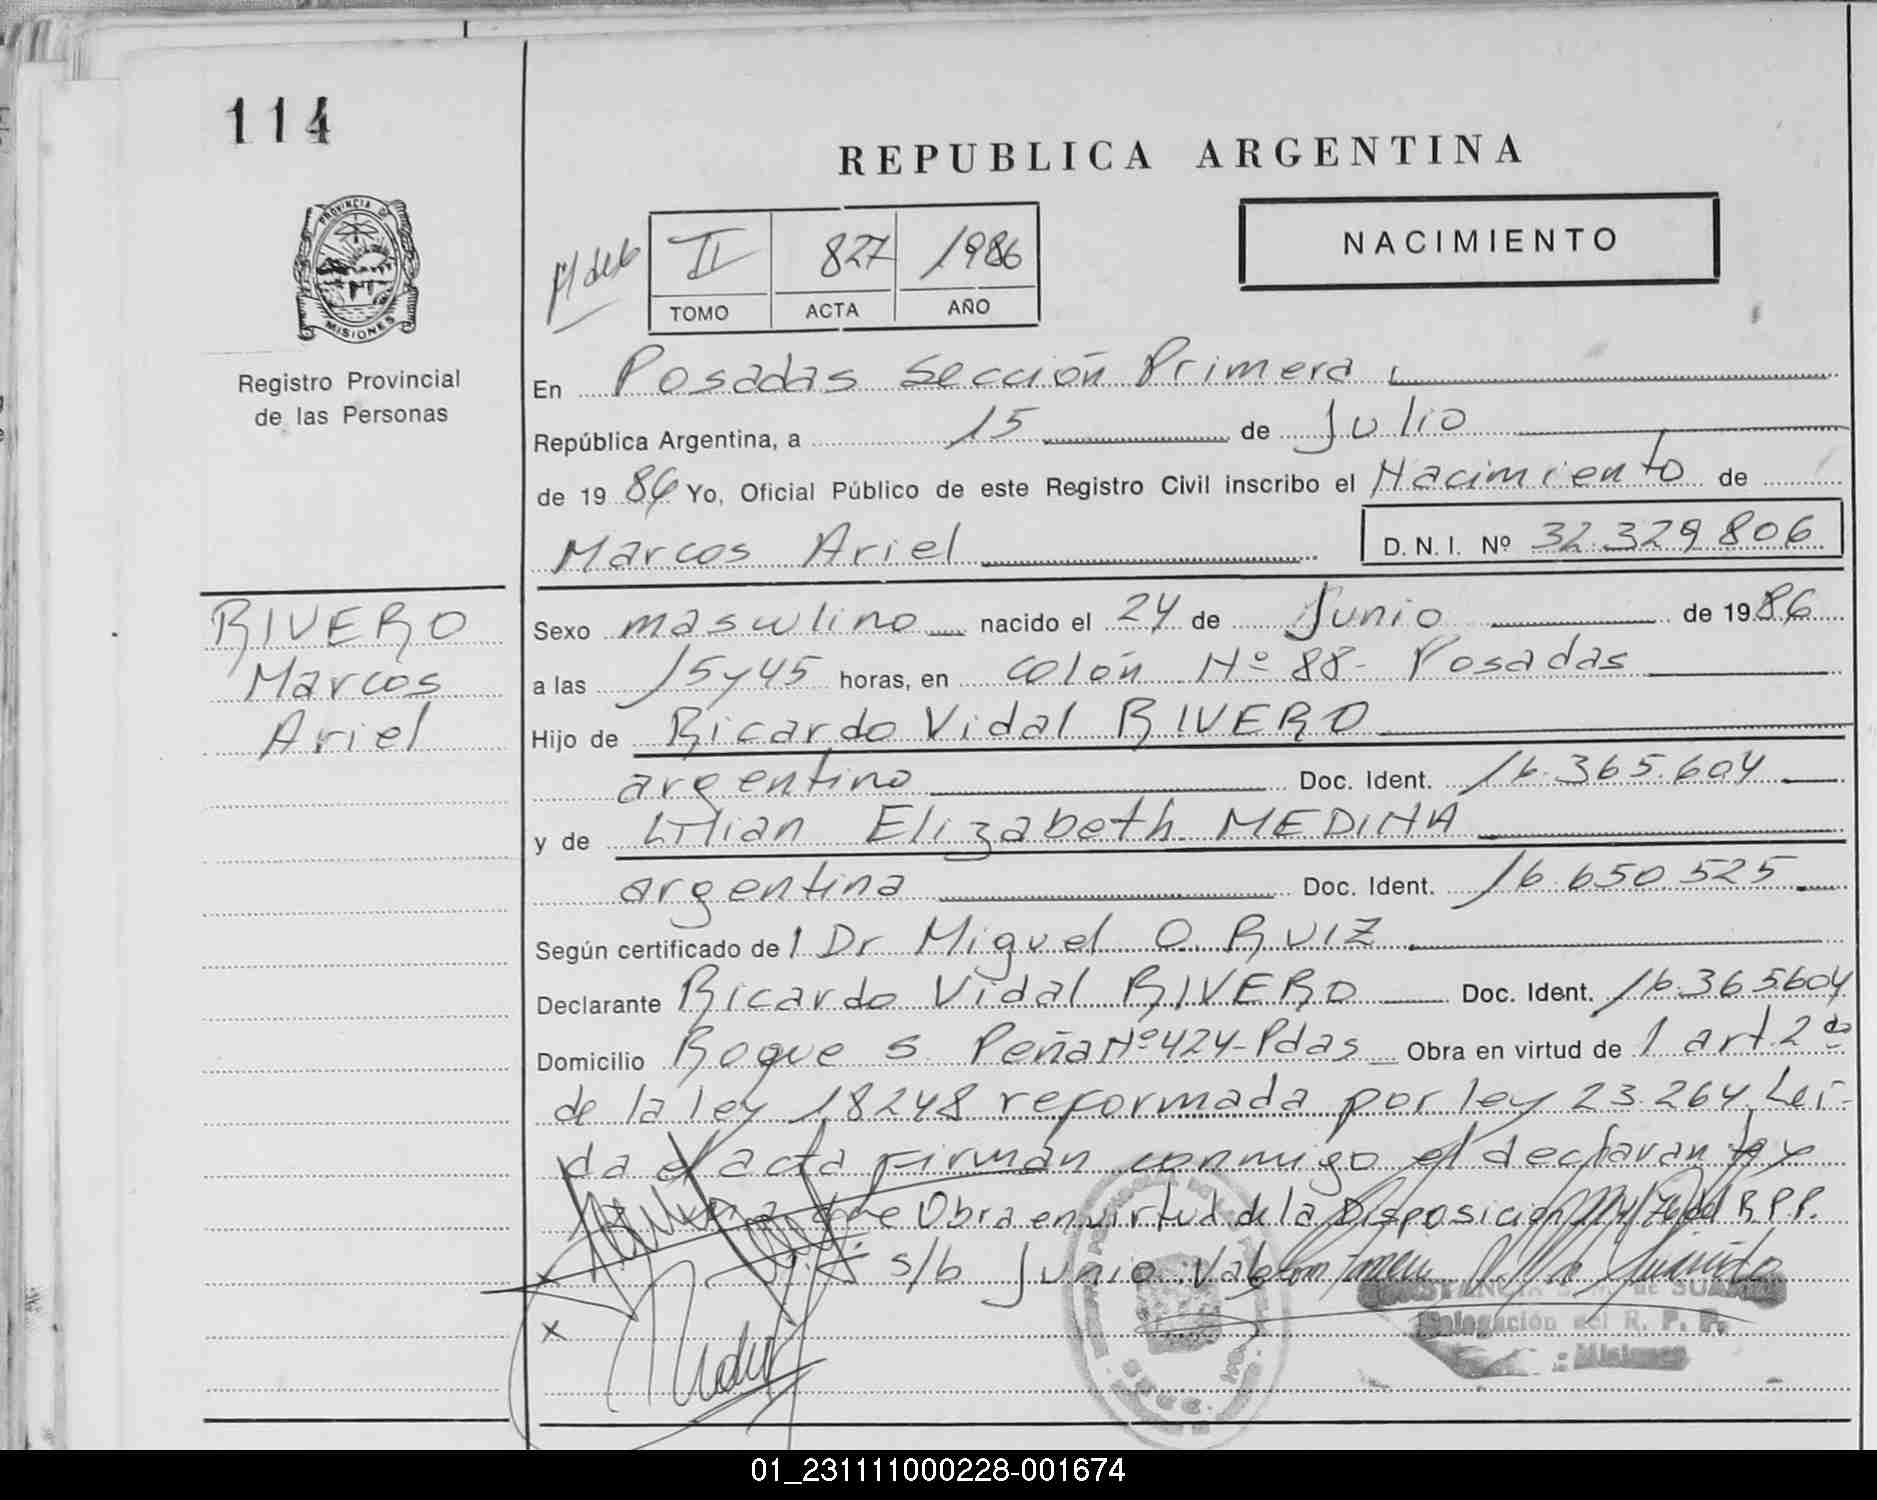 114
REPUBLICA ARGENTINA
PROVINCIA DE
MISIONES
Registro Provincial
de las Personas
II 827 1986
TOMO ACTA AÑO
NACIMIENTO
En Posadas Sección Primera
República Argentina, a 15 de Julio
de 1986 Yo, Oficial Público de este Registro Civil inscribo el Nacimiento de
Marcos Ariel D. N. I. Nº 32.329.806
RIVERO
Marcos
Ariel
Sexo masculino nacido el 24 de Junio de 1986
a las 15 y 45 horas, en Colón Nº 88- Posadas
Hijo de Ricardo Vidal RIVERO
argentino Doc. Ident. 16.365.604
y de Lilian Elizabeth MEDINA
argentina Doc. Ident. 16.650.525
Según certificado de l Dr Miguel O. RUIZ
Declarante Ricardo Vidal RIVERO Doc. Ident. 16.365604
Domicilio Roque S. Peña Nº 424-Pdas Obra en virtud de l art. 2do
de la ley 18248 reformada por ley 23.264, Leí-
da el acta firman conmigo el declarante y
que Obra en virtud de la Disposición R.P.P.
s/b Junio Vale
de SUA
Delegación del R. P. P.
Misiones
01_231111000228-001674